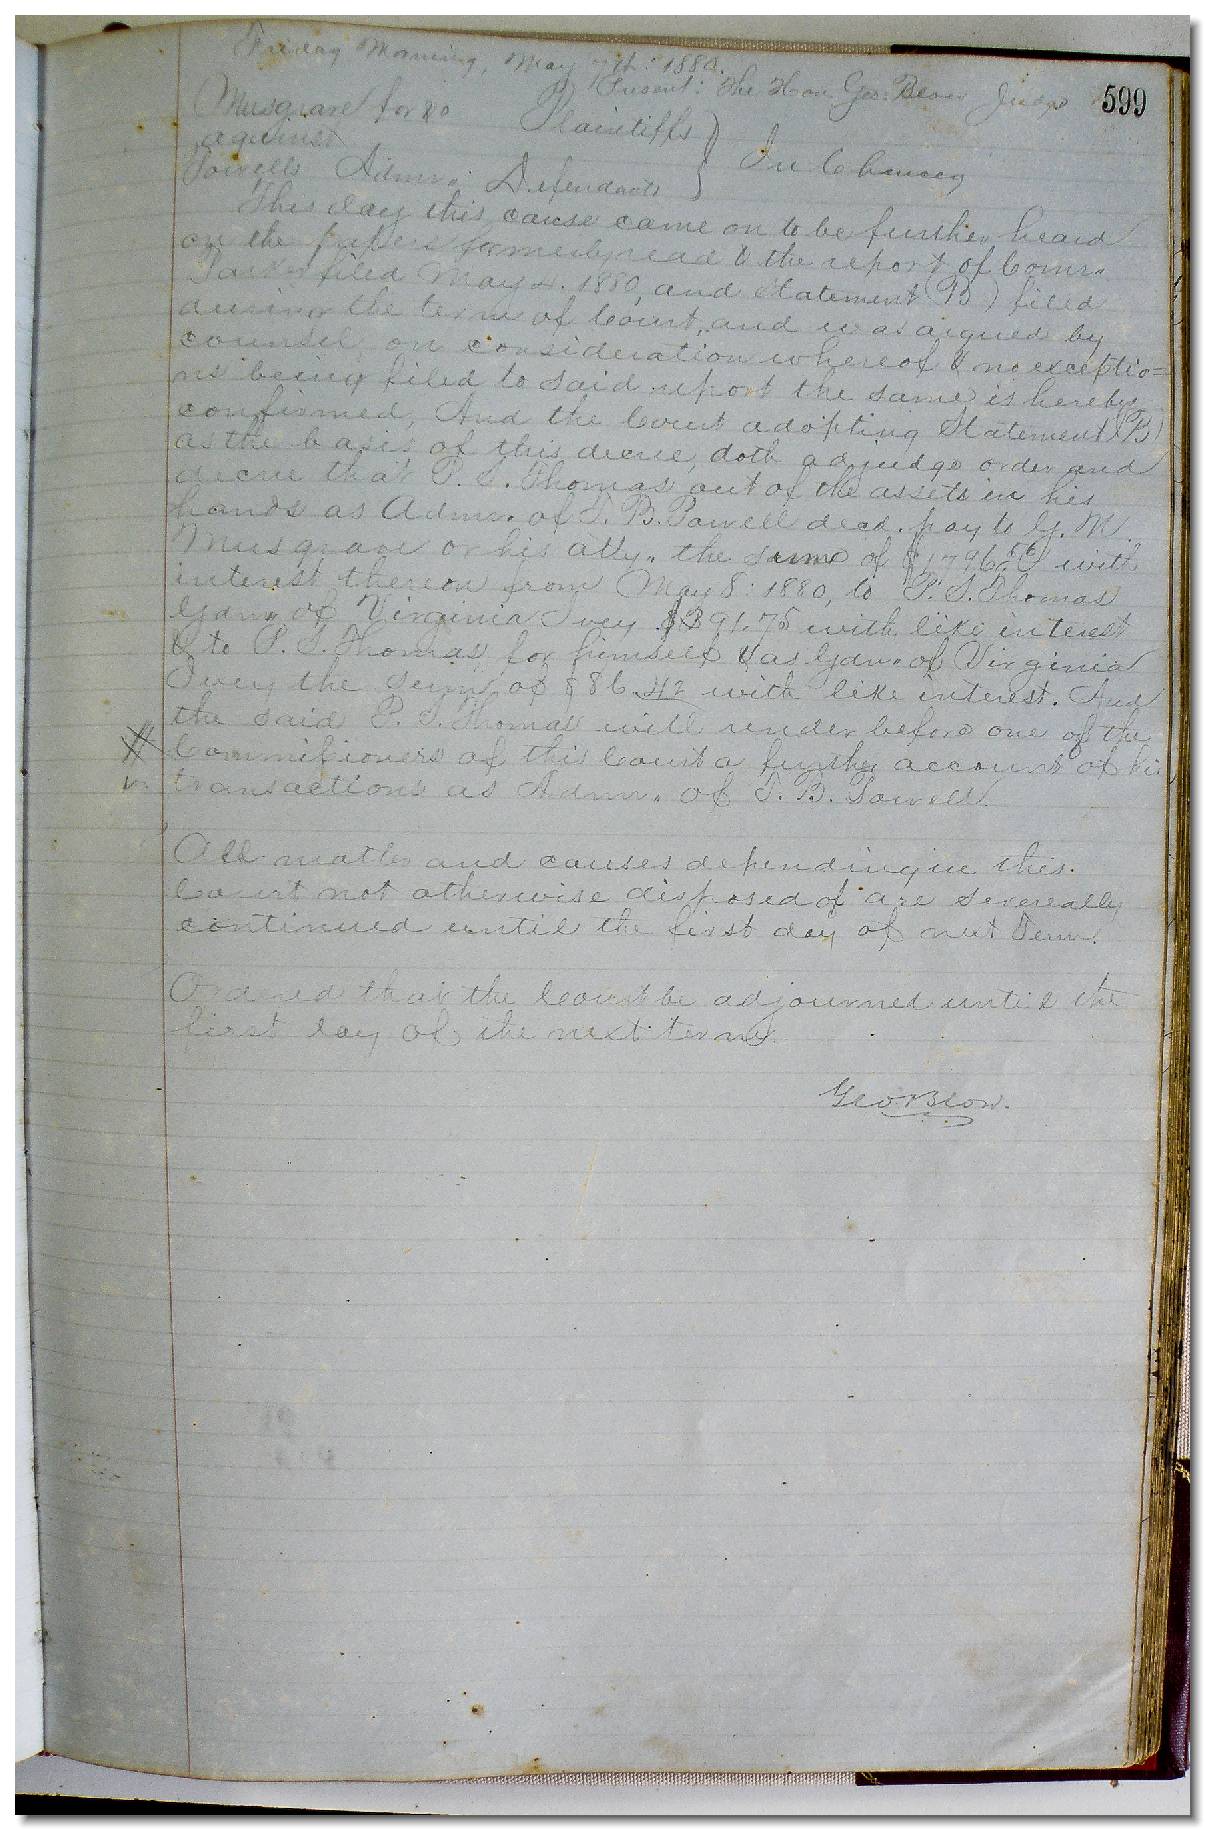 Friday Morning, May 7th: 1880.
Present: The Hon. Geo. Blow Judge
599
Musgrave for &c Plaintiffs
against
In Chancery
Powells Admr. Defendants
This day this cause came on to be further heard
on the papers formerly read & the report of Comr.
filed May 4. 1880, and Statement (B) filed
during the term of Court, and was argued by
counsel, on consideration whereof & no exceptio=
ns being filed to said report the same is hereby
confirmed, And the Court adopting Statement (B)
as the basis of this decree, doth adjudge order and
decree that P. S. Thomas out of the assets in his
hands as Admr. of T. B. Powell decd. pay to G. M.
Musgrave or his atty. the sume of with
interest thereon from May 8: 1880, to P. S. Thomas
Gdn. of Virginia Ivey $391.75 with like interest
& to P. S. Thomas for himself & as Gdn. of Virginia
Ivey the sum of $86.42 with like interest. And
the said P. S. Thomas will render before one of the
Commissioners of this Court a further account of his
transactions as Admr. of T. B. Powell.
All matters and causes depending in this
Court not otherwise disposed of are severeally
continued until the first day of next Term.
Ordered that the Court be adjourned until the
first day of the next term.
Geo. Blow.